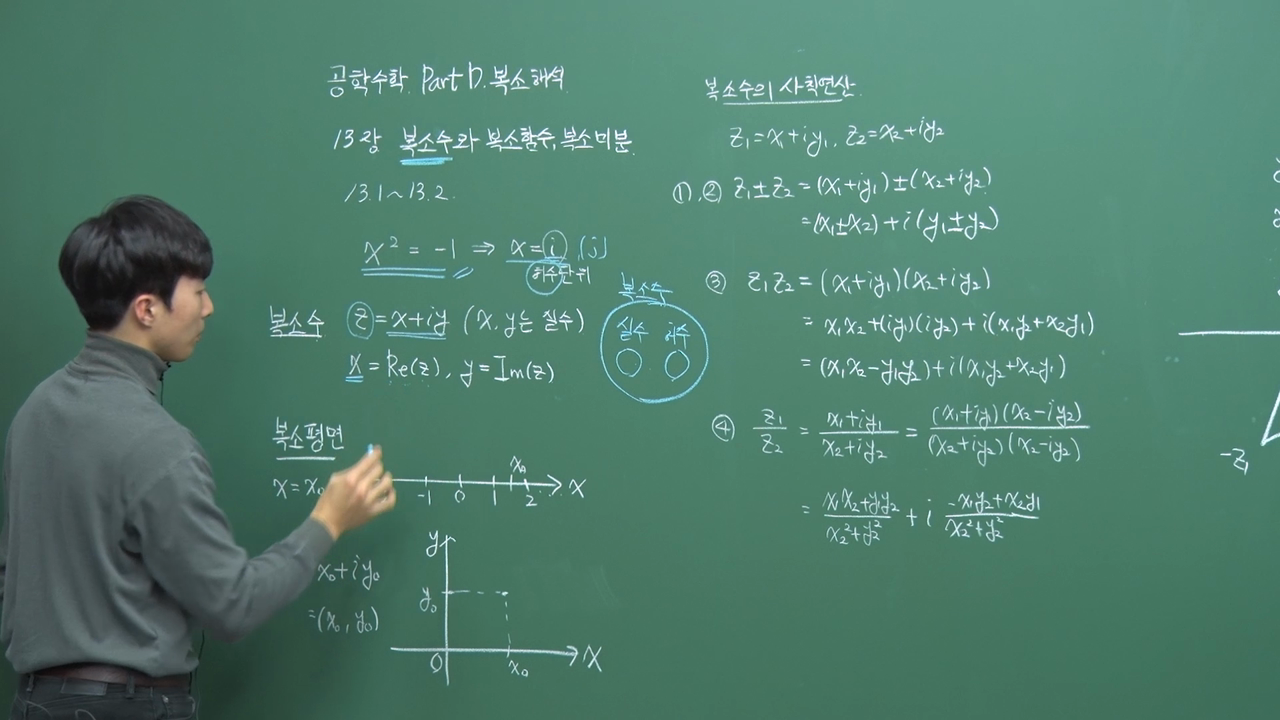 공학수학. Part D. 복소해석
13장 복소수와 복소함수, 복소미분
13.1~13.2.
x² = -1 ⇒ x = i, (j)
허수단위
복소수 z = x+iy (x, y는 실수)
x = Re(z), y = Im(z)
복소수
실수 허수
복소평면
x = x₀
x₀
-1 0 1 2 x
x₀+iy₀
=(x₀, y₀)
y
y₀
0 x₀ x
복소수의 사칙연산
z₁=x₁+iy₁, z₂=x₂+iy₂
①,② z₁±z₂ = (x₁+iy₁)±(x₂+iy₂)
=(x₁±x₂)+i(y₁±y₂)
③ z₁z₂ = (x₁+iy₁)(x₂+iy₂)
= x₁x₂+(iy₁)(iy₂)+i(x₁y₂+x₂y₁)
= (x₁x₂-y₁y₂)+i(x₁y₂+x₂y₁)
④ z₁/z₂ = (x₁+iy₁)/(x₂+iy₂) = (x₁+iy₁)(x₂-iy₂)/(x₂+iy₂)(x₂-iy₂)
= (x₁x₂+y₁y₂)/(x₂²+y₂²) + i (-x₁y₂+x₂y₁)/(x₂²+y₂²)
-z₁